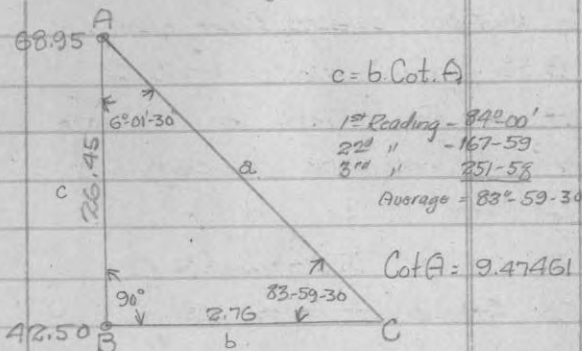 A
68.95
c = b. Cot. A
6°-01'-30
1st Reading - 84°-00'
2nd " - 167-59
3rd " 251-58
Average = 83°-59-30
a
c
26.45
Cot A = 9.47461
90°
83-59-30
2.76
42.50
B
b
C